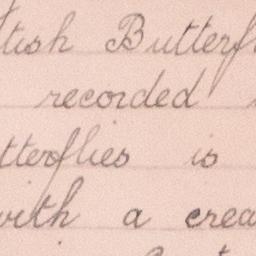 tish Butterfl
recorded
tterflies is
with a crea